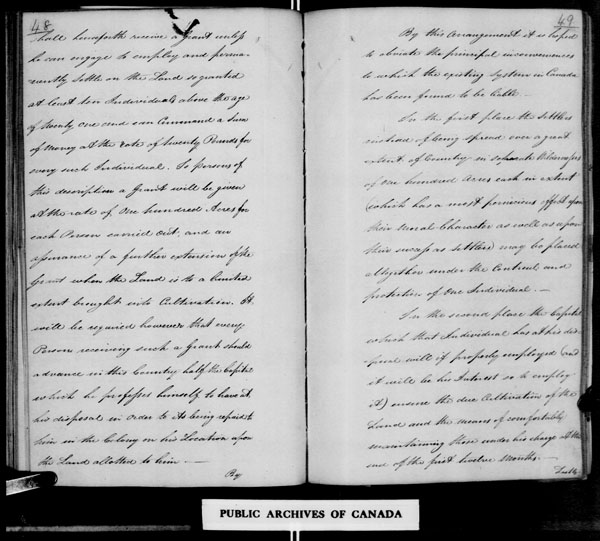 48
shall henceforth receive a grant unless
he can engage to employ and perma-
nently settle on the Land so granted
at least ten Individuals above the age
of twenty one and can Command a Sum
of Money at the rate of twenty Pounds for
every such Individual. To persons of
this description a Grant will be given
at the rate of One hundred Acres for
each Person carried out, and an
assurance of a further extension of the
Grant when the Land is to a limited
extent brought into Cultivation. It
will be required however that every
Person receiving such a Grant should
advance in this Country half the Capital
which he professes himself to have at
his disposal in order to its being repaid to
him in the Colony on his Location upon
the Land allotted to him —
By
49
By this Arrangement it is hoped
to obviate the principal inconveniences
to which the existing System in Canada
has been found to be liable. —
In the first place the Settlers
instead of being spread over a great
extent of Country in separate Wildernesses
of one hundred Acres each in extent
(which has a most pernicious effect upon
their Moral Character as well as upon
their success as Settlers) may be placed
altogether under the Controul and
protection of One Individual. —
In the second place the Capital
which that Individual has at his dis-
posal will if properly employed (and
it will be his Interest so to employ
it) ensure the due Cultivation of the
Land and the means of comfortably
maintaining those under his charge at the
end of the first twelve Months. —
PUBLIC ARCHIVES OF CANADA